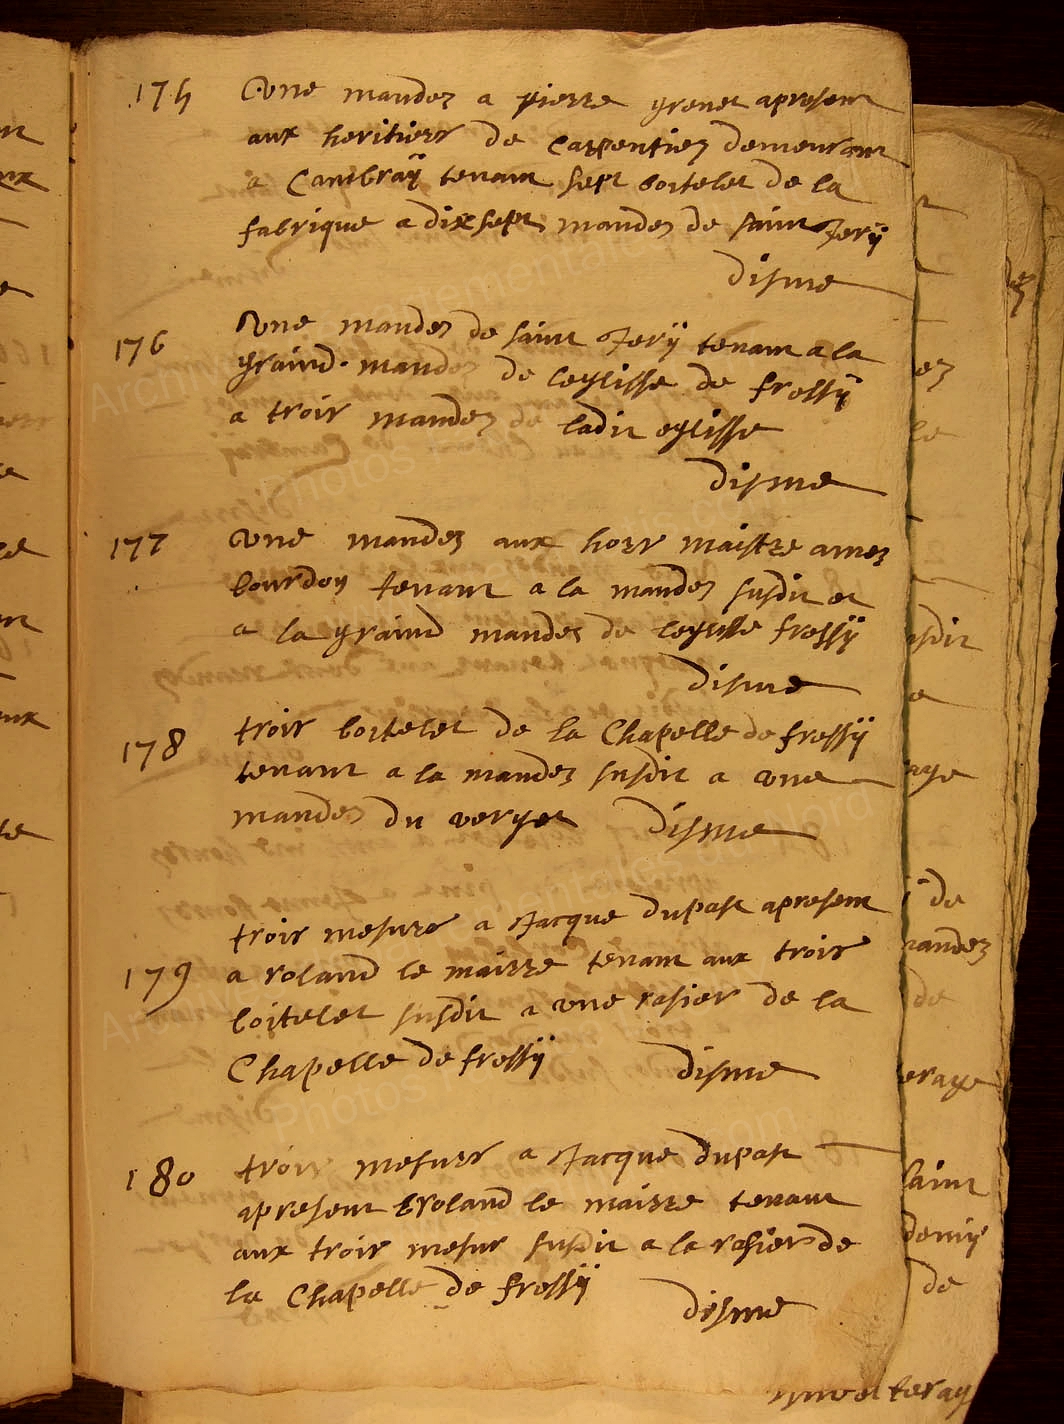 175 une mandez a pierre grenet apresent
aux heritiers de Carpentiez demeurant
a Cambraÿ tenant sept boitelet de la
fabrique a dix sept mandez de saint Jerÿ
disme
176 une mandez de saint Jerÿ tenant a la
graind mandez de leglisse de fressÿ
a troir mandez de ladit eglisse
disme
177 une mandez aux hoirr maistre amez
bourdon tenant a la mandez susdit et
a la graind mandez de leglisse fressÿ
disme
178 troir boitelet de la Chapelle de fressÿ
tenant a la mandez susdit a une
mandez du verger disme
troir mesure a Jacque dupast apresent
179 a roland le maitre tenant aux troir
boitelet susdit a une rasier de la
Chapelle de fressÿ disme
180 troir mesure a Jacque dupast
apresent a roland le maitre tenant
aux troir mesur susdit a la rasier de
la Chapelle de fressÿ
disme